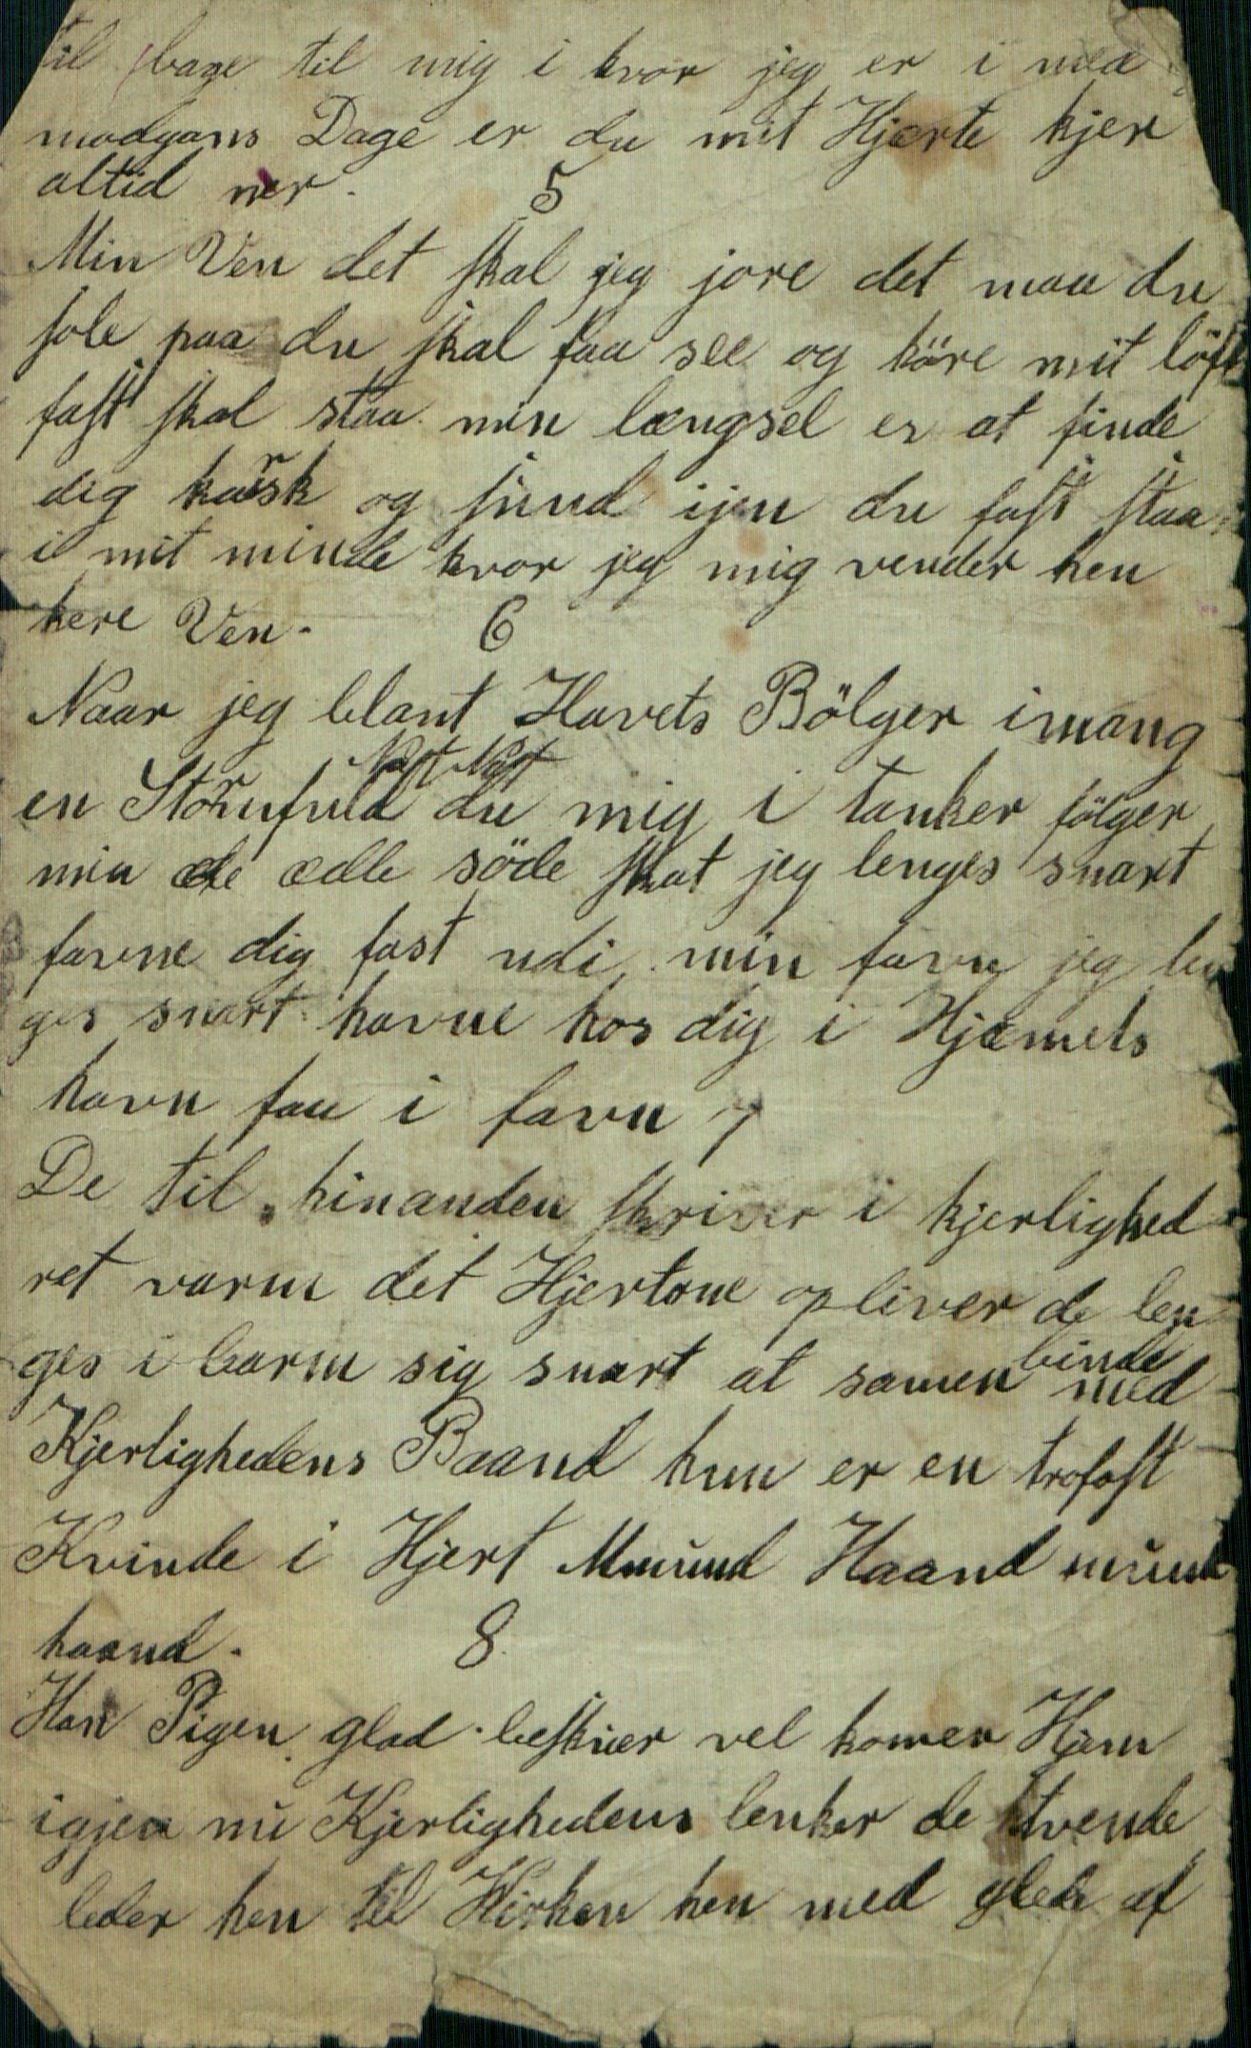 til bage til mig i hvor jeg er i med
modgans Dage er du mit Hjærte kjere
altid nær.
5
Min Ven det skal jeg jøre det maa du
sole paa du skal faa see og höre mit löft
fast skal staa min længsel er at finde
dig karsk og sund ijen du fast staar
i mit minde hvor jeg mig vender hen
kere Ven.
6
Naar jeg blant Havets Bölger imang
en Stormfuld Nat Nat du mig i tanker fölger
min ædle söde skat jeg lenges snart
favne dig fast udi min favn jeg len
ges snart havne hos dig i Hjæmets
havn faa i favn 7
De til hinanden skriver i kjerlighed
ret varm det Hjertone opliver de len
ges i barm sig snart at samen binde med
Kjerlighedens Baand hun er en trofast
Kvinde i Hjert Mmund Haand mund
haand.
8
Han Pigen glad beskuer vel komen Hjem
igjen nu Kjerlighedens lenker de tvende
leder hen til Kirken hen med glede af